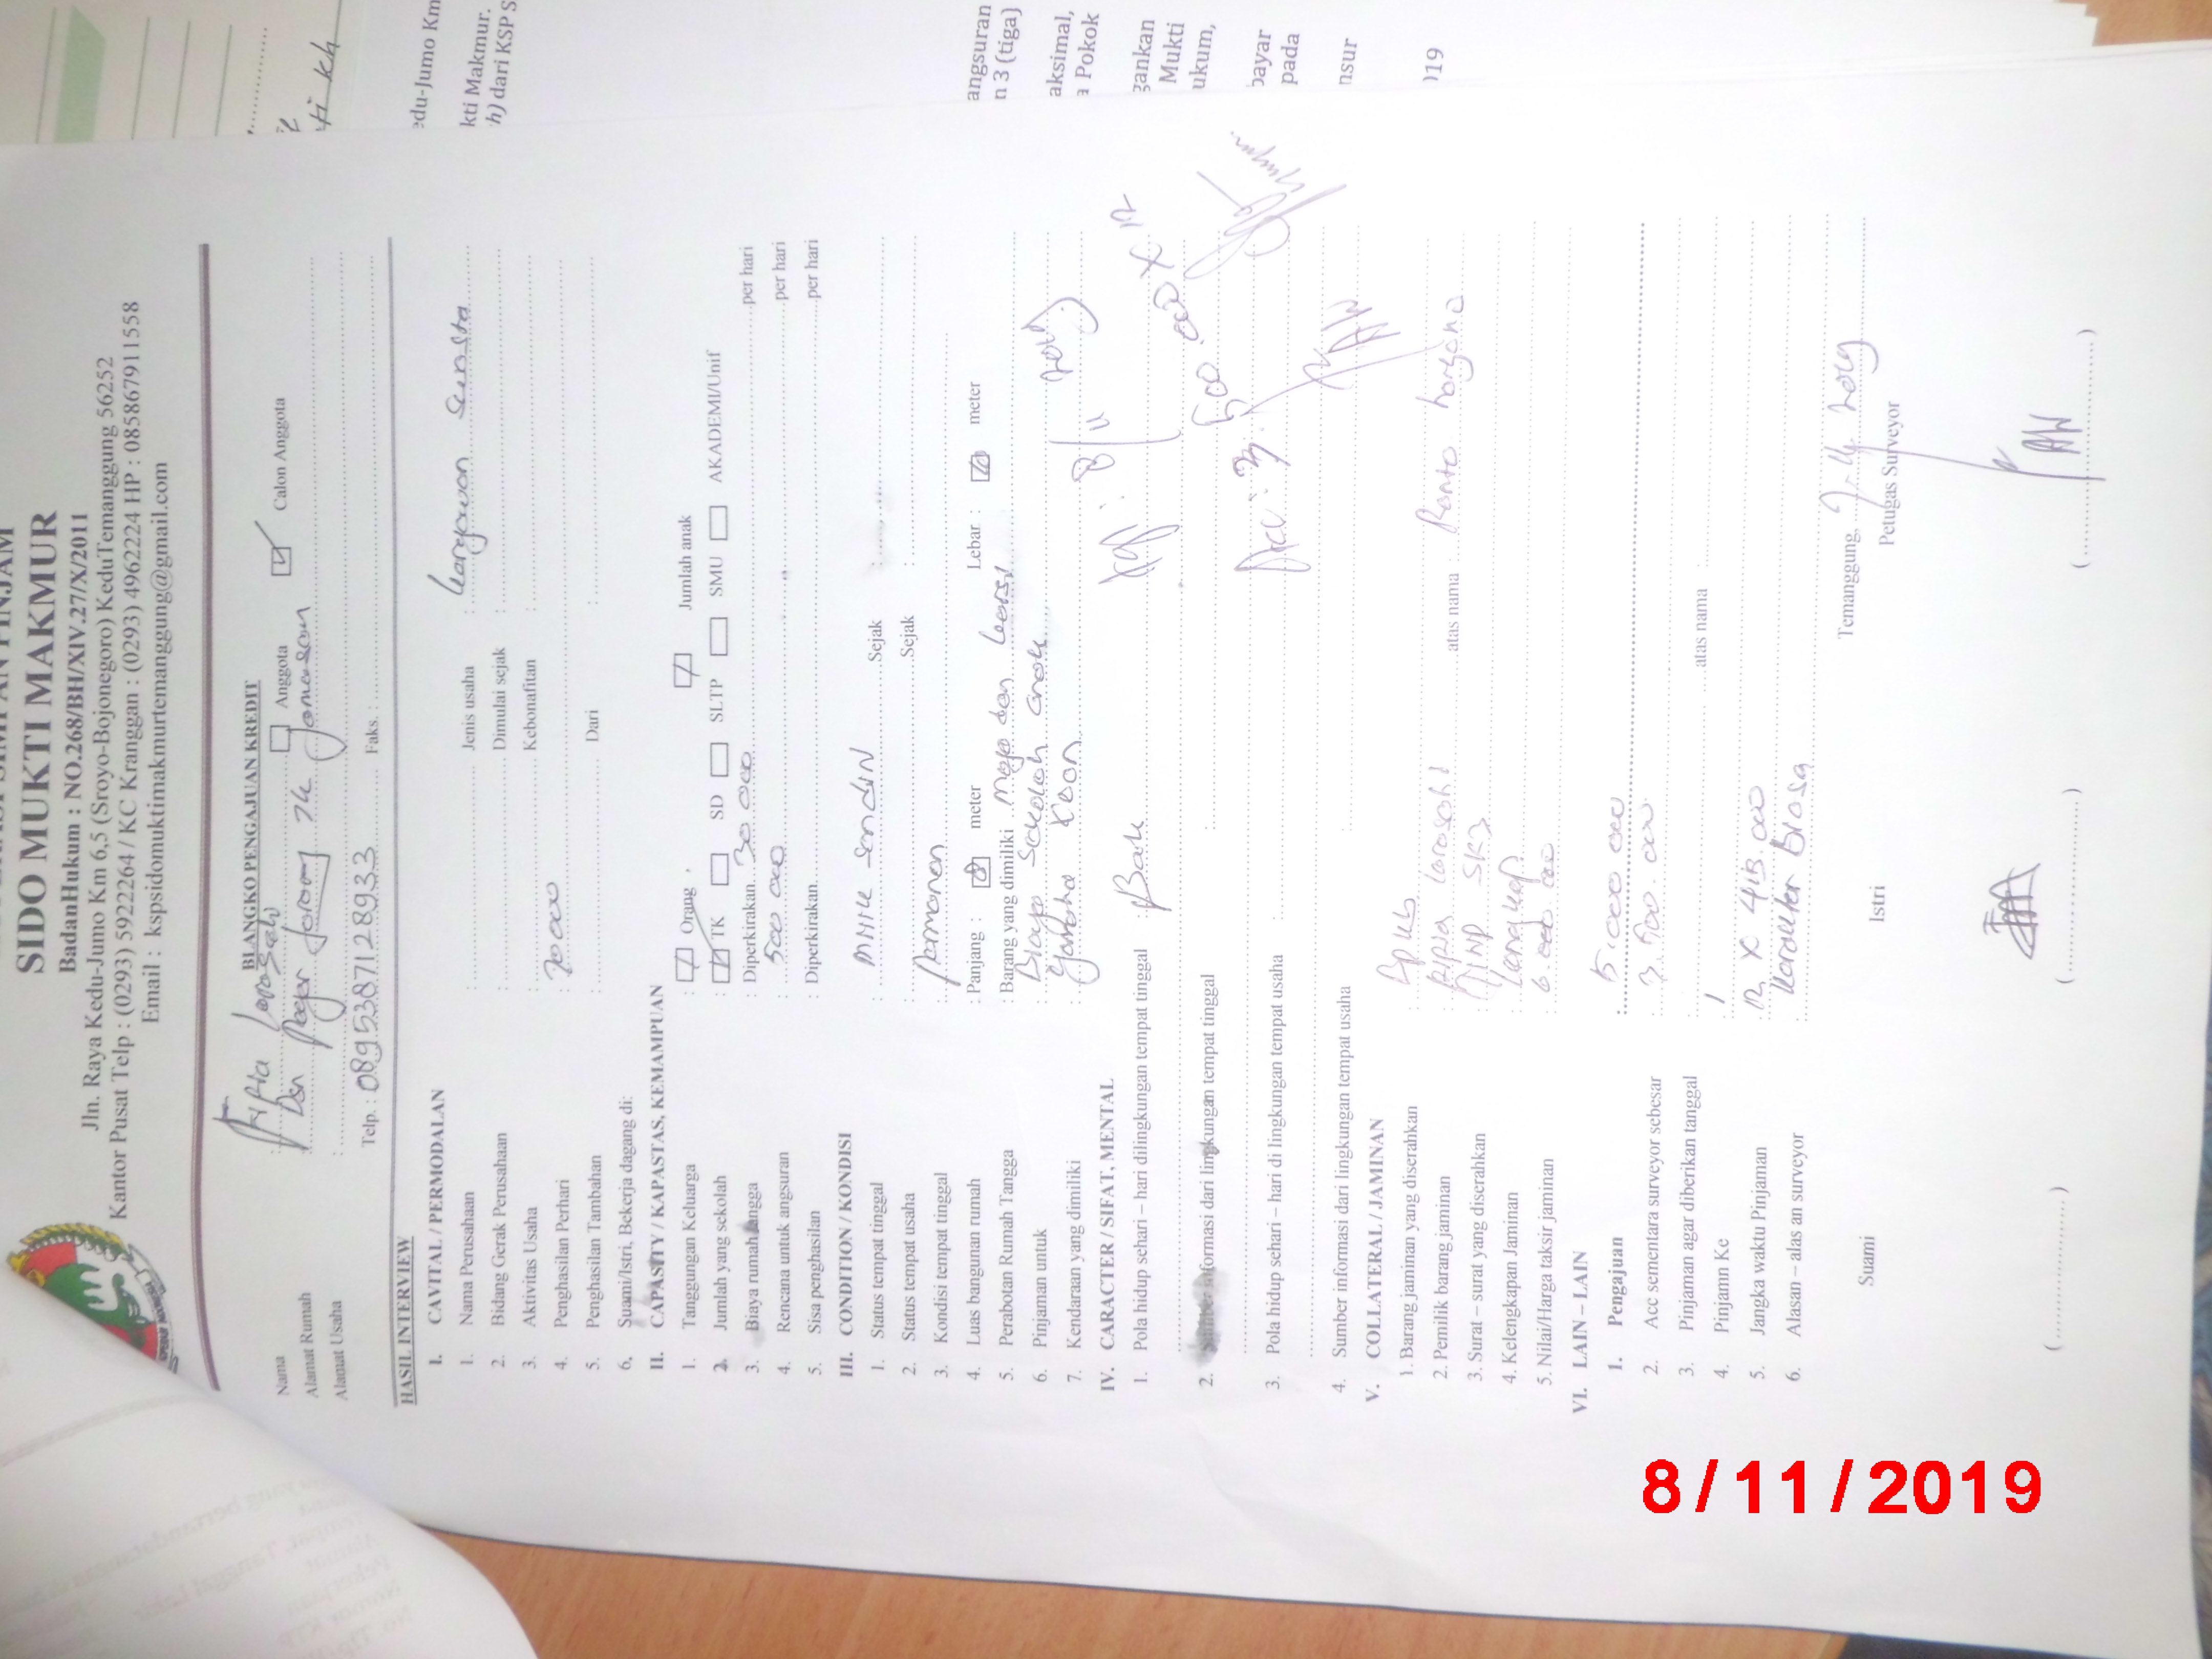 SIDO MUKTI MAKMUR
BadanHukum : NO.268/BH/XIV.27/X/2011
Jln. Raya Kedu-Jumo Km 6,5 (Sroyo-Bojonegoro) KeduTemanggung 56252
Kantor Pusat Telp : (0293) 5922264 / KC Kranggan : (0293) 4962224 HP : 085867911558
Email : kspsidomuktimakmurtemanggung@gmail.com
BLANGKO PENGAJUAN KREDIT
Nama : Larasati Anggota Calon Anggota
Alamat Rumah : Dsn
Alamat Usaha :
Telp. : 0895387128933 Faks. :
HASIL INTERVIEW
I. CAVITAL / PERMODALAN
1. Nama Perusahaan : Jenis usaha : Karyawan
2. Bidang Gerak Perusahaan : Dimulai sejak :
3. Aktivitas Usaha : Kebonafitan :
4. Penghasilan Perhari : 70 000
5. Penghasilan Tambahan : Dari :
6. Suami/Istri, Bekerja dagang di:
II. CAPASITY / KAPASTAS, KEMAMPUAN
1. Tanggungan Keluarga : Orang , Jumlah anak
2. Jumlah yang sekolah : TK SD SLTP SMU AKADEMI/Unif
3. Biaya rumah tangga : Diperkirakan 30 000 per hari
4. Rencana untuk angsuran : 500 000 per hari
5. Sisa penghasilan : Diperkirakan per hari
III. CONDITION / KONDISI
1. Status tempat tinggal : Milik sendiri Sejak :
2. Status tempat usaha : Sejak :
3. Kondisi tempat tinggal : Permanen
4. Luas bangunan rumah : Panjang : 8 meter Lebar : meter
5. Perabotan Rumah Tangga : Barang yang dimiliki Meja dan kursi
6. Pinjaman untuk : Biaya Sekolah anak
7. Kendaraan yang dimiliki : Yamaha Xeon
IV. CARACTER / SIFAT, MENTAL
8/11 2019
1. Pola hidup sehari – hari dilingkungan tempat tinggal : Baik
2. Sumber informasi dari lingkungan tempat tinggal :
Acc : 3.500.000 X 12
3. Pola hidup sehari – hari di lingkungan tempat usaha :
4. Sumber informasi dari lingkungan tempat usaha :
V. COLLATERAL / JAMINAN
1. Barang jaminan yang diserahkan : BPKB
2. Pemilik barang jaminan : Larasati atas nama
3. Surat – surat yang diserahkan :
4. Kelengkapan Jaminan : Lengkap
5. Nilai/Harga taksir jaminan : 6.000 000
VI. LAIN – LAIN
1. Pengajuan : 5.000 000
2. Acc sementara surveyor sebesar : 3.500.000
3. Pinjaman agar diberikan tanggal :
4. Pinjamn Ke : 1 atas nama :
5. Jangka waktu Pinjaman : 12 X
6. Alasan – alas an surveyor : Karakter Biasa
Temanggung,
Suami Istri Petugas Surveyor
(..................) (..................) (..................)
8/11/2019
edu-Jumo Km
kti Makmur.
h) dari KSP S
angsuran
n 3 (tiga)
aksimal,
a Pokok
gankan
Mukti
ukum,
bayar
pada
nsur
019